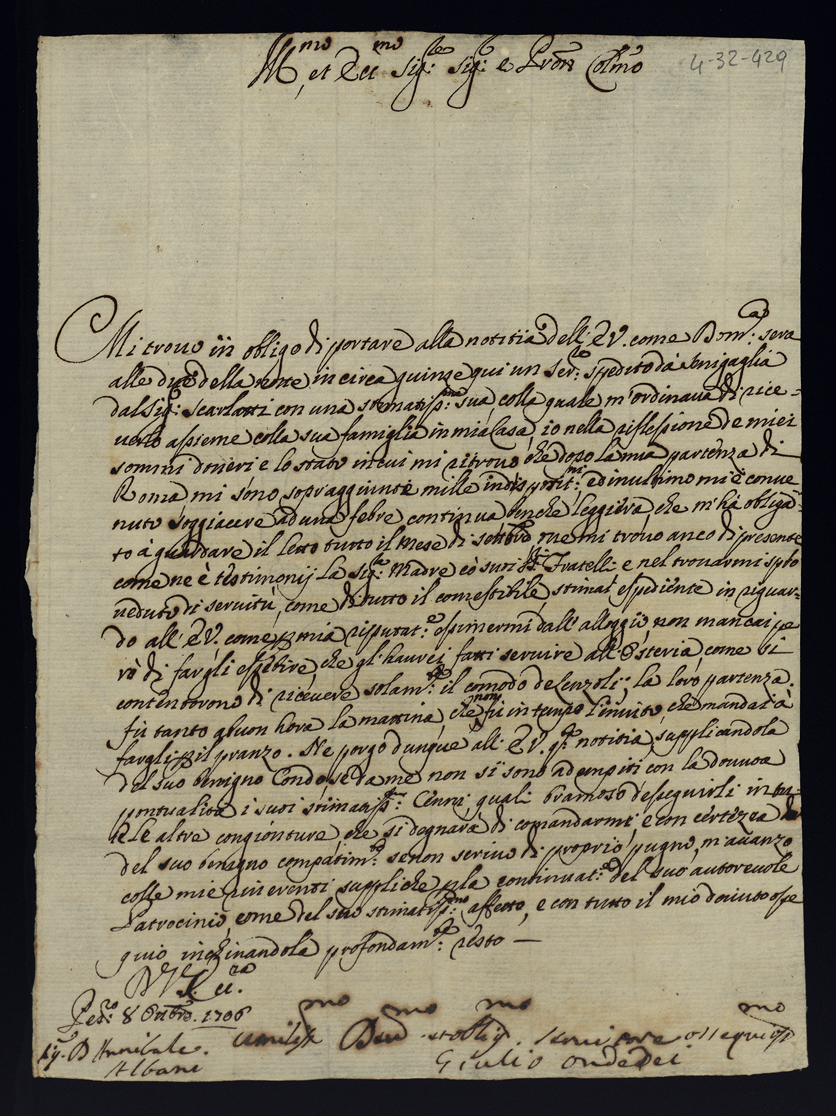 Ill.mo et Ecc.mo Sig.re Sig.r e Pron Colmo
4-32-429
Mi trovo in obligo di portare alla notitia dell'E.V. come Dom.ca sera
alle due della notte in circa giunze qui un ser.re spedito da Senigaglia
dal Sig.r Scarlatti con una stimatiss.ma sua colla quale m'ordinava di rice-
verlo assieme colla sua famiglia in mia Casa, io nella riflessione de miei
sommi doveri e lo stato in cui mi ritrovo che dopo la mia partenza di
Roma mi sono sopraggiunte mille indisposit.ni ed in ultimo mi è conve
nuto soggiacere ad una febre continua benche leggiera, che m'hà obliga-
to à guardare il letto tutto il Mese di Settbre, ove mi trovo anco di presente
come ne è testimonij la Sig.ra Madre e suoi SS.ri Fratelli e nel trovarmi spro
veduto di servitù, come di tutto il comestibile stimai espediente in riguar-
do all'E.V. come p mia riputat.e esimermi dall'alloggio, non mancai pe
rò di fargli essibire, che gl'haverei fatti servire all'Osteria, come si
contentorono di ricevere solam.te il comodo de Lenzoli; la loro partenza
fù tanto a buon hora la mattina, che non fù in tempo l'invito, che mandai à
fargli p il pranzo. Ne porgo dunque all'E.V. q.ta notitia supplicandola
del suo benigno Condo, se da me non si sono adempiti con la dovuta
pontualità i suoi stimatiss.mi Cenni, quali bramoso d'eseguirli in tut-
te le altre congionture, che si degnarà di comandarmi, e con certezza
del suo benigno compatim.to se non scrivo di proprio pugno, m'avanzo
colle mie riverenti suppliche p la continuat.e del suo autorevole
Patrocinio, come del suo stimatiss.mo affetto, e con tutto il mio dovuto osse
quio inchinandola profondam.te resto —
D V. Ecc.za
Pes.ro 8 Ottbre. 1706
Sig.r D Annibale
Albani
Umiliss.mo Dev.mo et Obblig.mo Servitore ossequios.mo
Giulio Ondedei